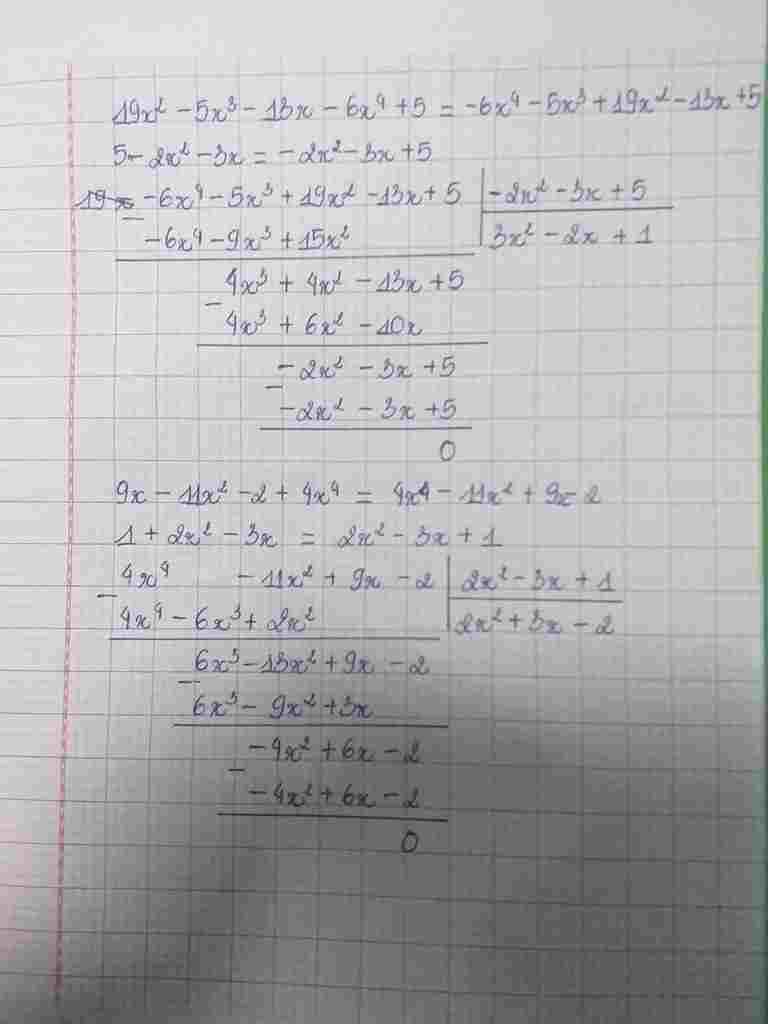 19x² - 5x³ - 13x - 6x⁴ + 5 = -6x⁴ - 5x³ + 19x² - 13x + 5
5 - 2x² - 3x = -2x² - 3x + 5
-6x⁴ - 5x³ + 19x² - 13x + 5 | -2x² - 3x + 5
- -6x⁴ - 9x³ + 15x² | 3x² - 2x + 1
4x³ + 4x² - 13x + 5
- 4x³ + 6x² - 10x
-2x² - 3x + 5
- -2x² - 3x + 5
0
9x - 11x² - 2 + 4x⁴ = 4x⁴ - 11x² + 9x - 2
1 + 2x² - 3x = 2x² - 3x + 1
4x⁴ - 11x² + 9x - 2 | 2x² - 3x + 1
- 4x⁴ - 6x³ + 2x² | 2x² + 3x - 2
6x³ - 13x² + 9x - 2
- 6x³ - 9x² + 3x
-4x² + 6x - 2
- -4x² + 6x - 2
0